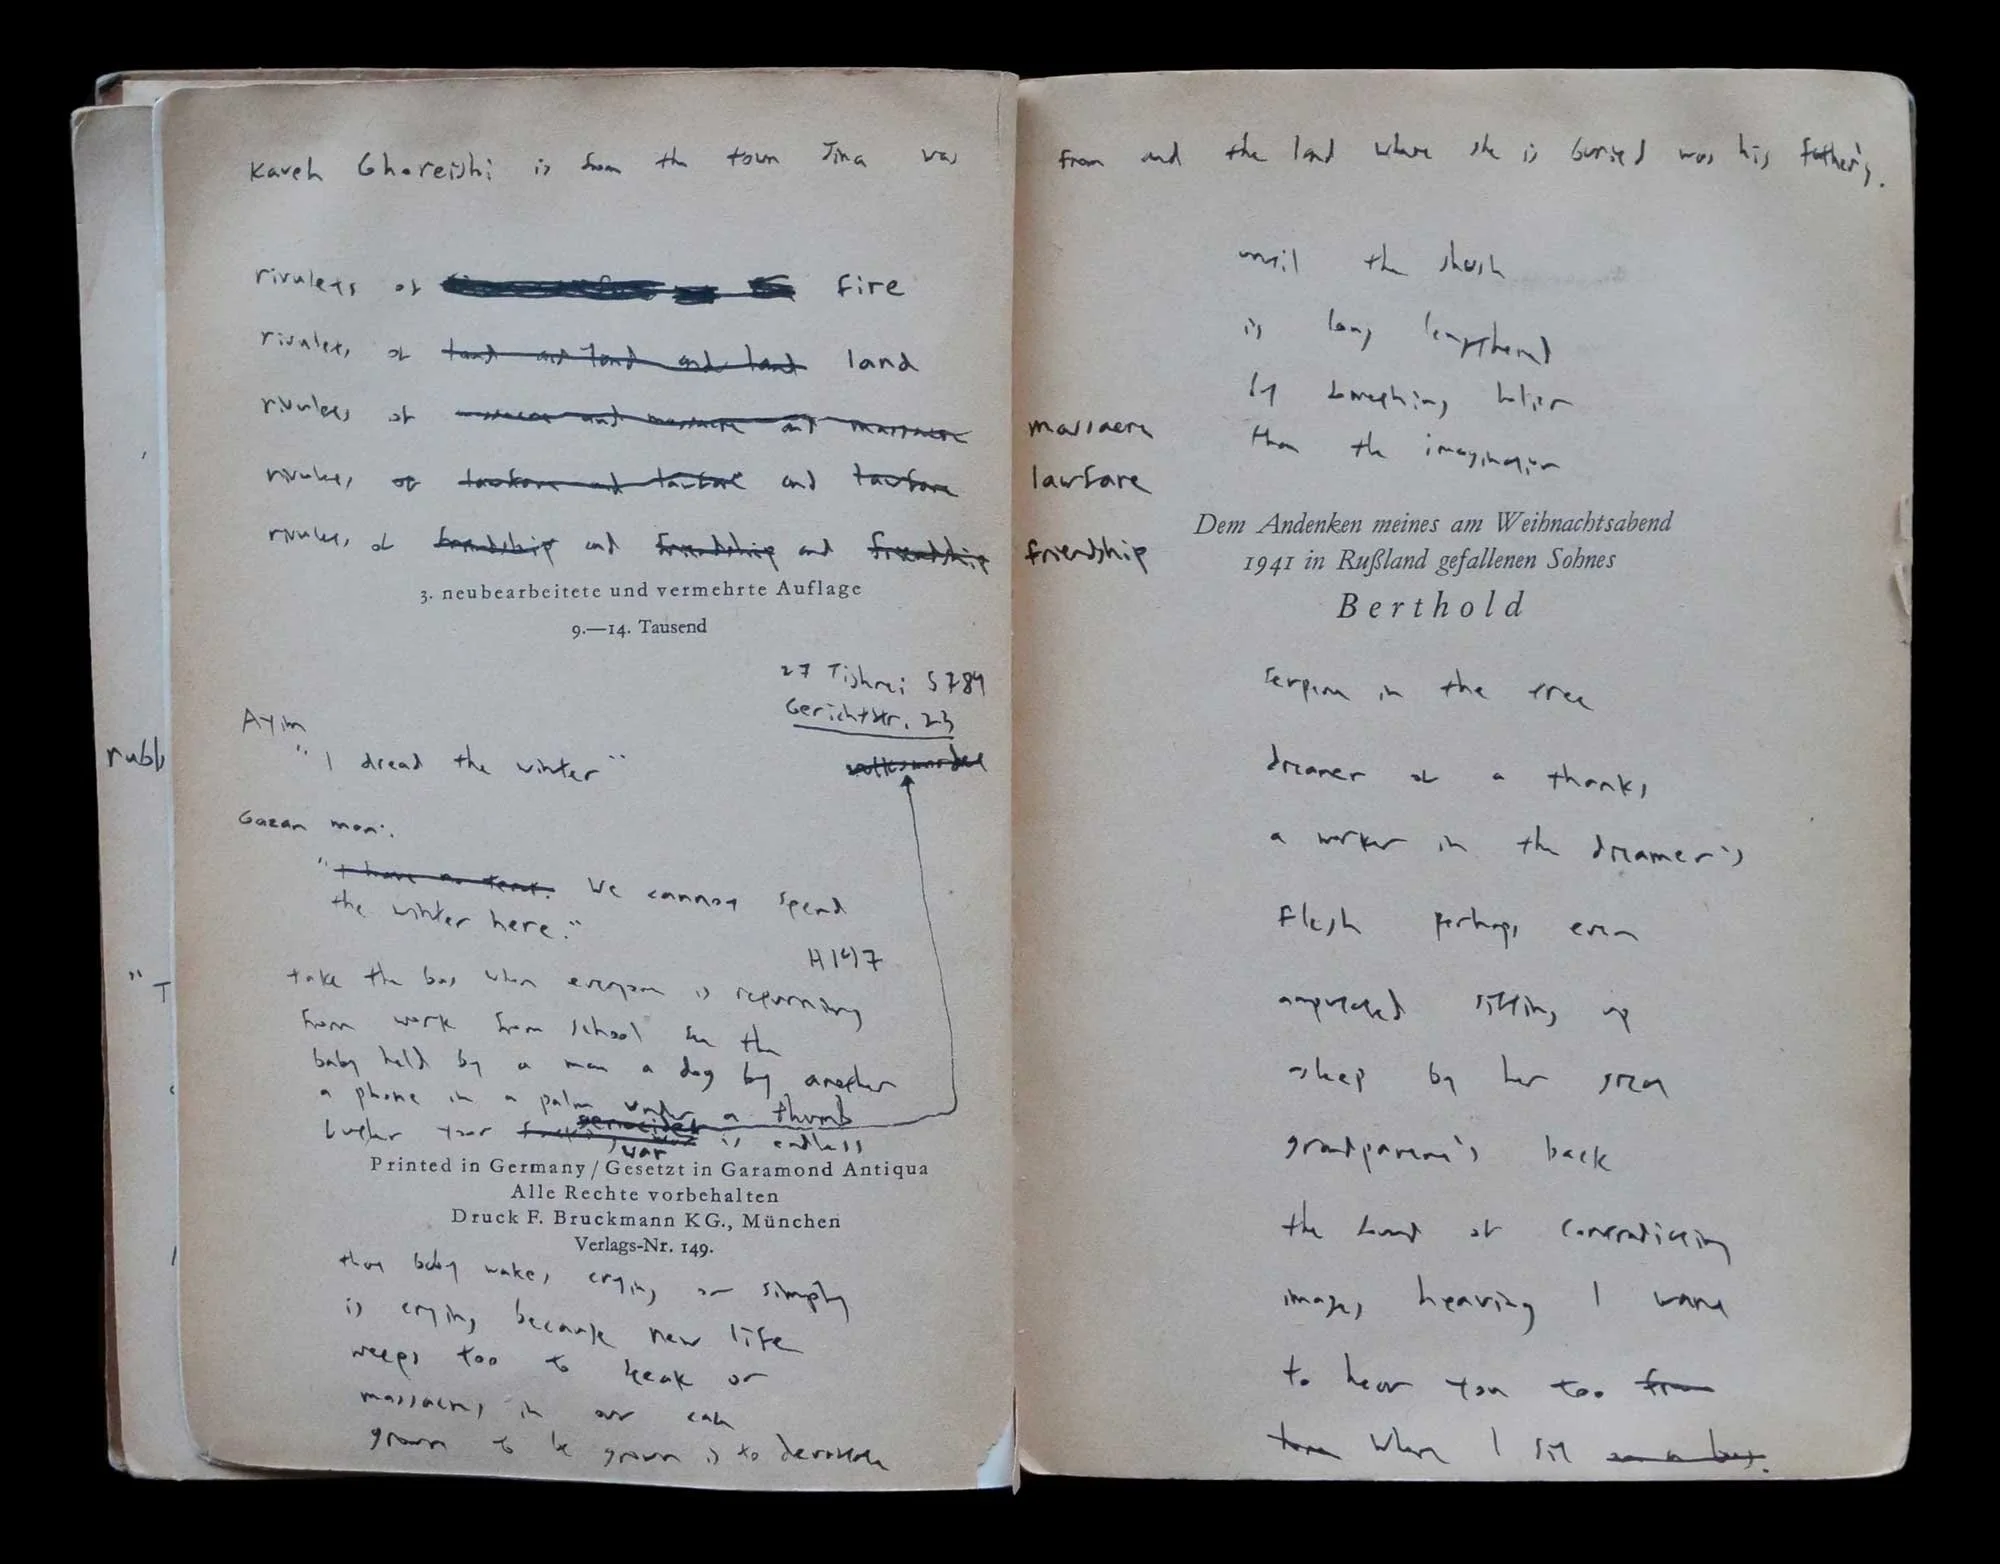 Kaveh Ghoreishi is from the town Jina was from and the land where she is buried was his father's.
rivulets of fire
rivulets of land and land and land land
rivulets of massacre and massacre and massacre massacre
rivulets of lawfare and lawfare and lawfare lawfare
rivulets of friendship and friendship and friendship friendship
3. neubearbeitete und vermehrte Auflage
9.—14. Tausend
27 Tishrei 5784
Gerichtstr. 23
Ayim
"I dread the winter"
rubb
Gazan man:
"I have no tent. We cannot spend
the winter here."
H147
"T
take the bus when everyone is returning
from work from school see the
baby held by a man a dog by another
a phone in a palm under a thumb
your genocides war is endless
Printed in Germany / Gesetzt in Garamond Antiqua
Alle Rechte vorbehalten
Druck F. Bruckmann KG., München
Verlags-Nr. 149.
that baby wakes crying or simply
is crying because new life
weeps too to speak of
massacres in our
grown to be grown is to
until the shush
is long lengthened
by something holier
than the imagination
Dem Andenken meines am Weihnachtsabend
1941 in Rußland gefallenen Sohnes
Berthold
serpent in the tree
dreamer of a thanks
a worker in the dreamer's
flesh perhaps even
amputated sitting up
asleep by her
grandparent's back
the sound of contradicting
images hearing I want
to hear you too from
when I sit on a bus.